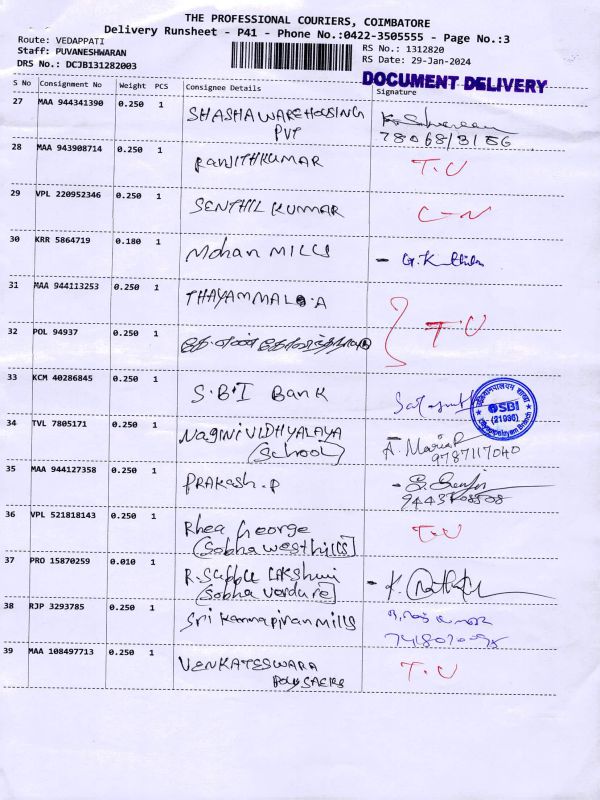 THE PROFESSIONAL COURIERS, COIMBATORE
Delivery Runsheet - P41 - Phone No.:0422-3505555 - Page No.:3
Route: VEDAPPATI
Staff: PUVANESHWARAN
DRS No.: DCJB131282003
RS No.: 1312820
RS Date: 29-Jan-2024
DOCUMENT DELIVERY
S No Consignment No Weight PCS Consignee Details Signature
27 MAA 944341390 0.250 1 SHASHA WAREHOUSING
PVT
28 MAA 943908714 0.250 1 RANJITHKUMAR T.U
29 VPL 220952346 0.250 1 SENTHIL KUMAR C-N
30 KRR 5864719 0.180 1 Mohan MILLS
31 MAA 944113253 0.250 1 THAYAMMAL.A
T.U
32 POL 94937 0.250 1
33 KCM 40286845 0.250 1 S.B.I Bank
SBI
(21936)
34 TVL 7805171 0.250 1 Nagini VIDHYALAYA
(School)
A. Maria
9787117040
35 MAA 944127358 0.250 1 PRAKASH.P
36 VPL 521818143 0.250 1 Rhea George T.U
(Sobha westhills)
37 PRO 15870259 0.010 1
38 RJP 3293785 0.250 1 Sri Kannapiran Mills
39 MAA 108497713 0.250 1 VENKATESWARA T.U